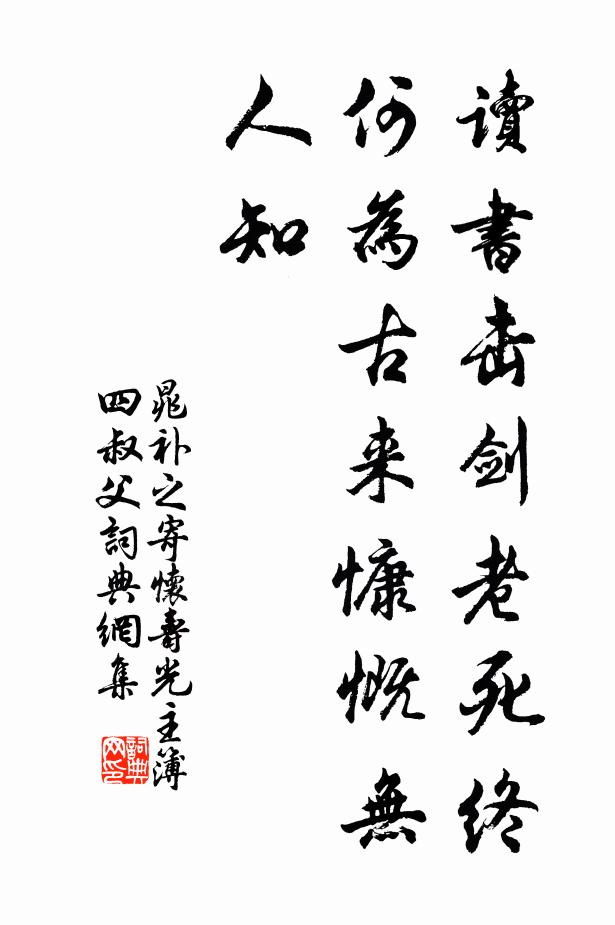 读書击剑老死终
何為古来慷慨無
人知
晁补之寄懷壽光主簿
四叔父詞典網集
詞典
网印